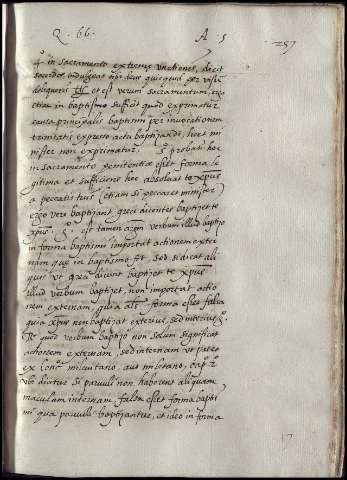 Q. 66. A. 5 257
4º in sacramento extremæ unctionis, dicit
sacerdos indulgeat tibi deus quicquid per visum
deliquisti et est verum sacramentum, ergo
etiam in baptismo sufficit quod exprimatur
causa principalis baptismi per invocationem
trinitatis expresso actu baptizandi, licet mi
nister non exprimatur. 5º probatur hec
in sacramento penitentiæ esset forma le
gitima et sufficiens hec absolvat te xpus
a peccatis tuis (etiam si peccaret minister)
ergo vere baptizant, græci dicentes baptizet te
xpus. est tamen verbum illud baptizo
in forma baptismi importat actionem exter
nam que in baptismo fit, sed dicat ali
quis ut græci dicunt baptizet te xpus
illud verbum baptizet, non importat actio
nem externam, quia als forma esset falsa
quia xpus non baptizat exterius, sed interius
quod verbum baptizo non solum significat
actionem externam, sed internam ut patet
ex concº milevitano, cap. 2º
ubi dicitur si parvuli non haberent aliquam
maculam internam, falsa esset forma bapti
mi qua parvuli baptizantur, et ideo in forma